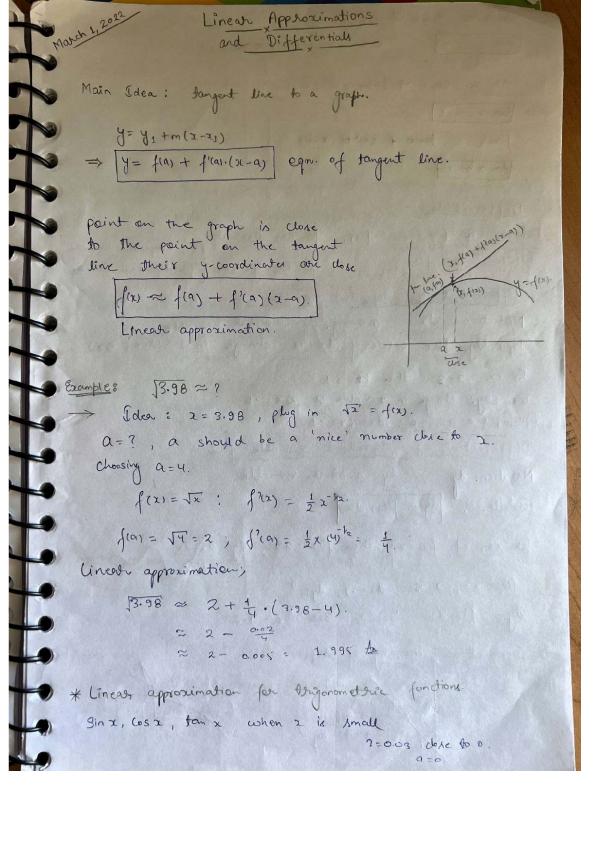 March 1, 2022
Linear Approximations
and Differentials
Main Idea: tangent line to a graph.
y = y₁ + m(x-x₁)
⇒ y = f(a) + f'(a)·(x-a) eqn. of tangent line.
point on the graph is close
to the point on the tangent
line their y-coordinates are close
f(x) ≈ f(a) + f'(a)(x-a)
Linear approximation.
(x, f(a)+f'(a)(x-a))
(a, f(a))
(x, f(x))
y = f(x)
a x
close
Example: √3.98 ≈ ?
→ Idea: x = 3.98, plug in √x = f(x).
a = ?, a should be a 'nice' number close to x.
Choosing a = 4.
f(x) = √x : f'(x) = 1/2 x^-1/2.
f(a) = √4 = 2, f'(a) = 1/2 x (4)^-1/2 = 1/4.
Linear approximation,
√3.98 ≈ 2 + 1/4 · (3.98-4).
≈ 2 - 0.02/4
≈ 2 - 0.005 = 1.995
* Linear approximation for trigonometric functions
sin x, cos x, tan x when x is small
x = 0.03 close to 0.
a = 0